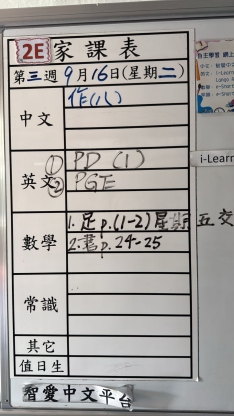 2E 家課表
第三週9月16日(星期二)
中文 作(八)
英文 ① PD (1)
② PGE
數學 1. 足 p.(1-2) 星期五交
2. 書 p. 24-25
常識
其它
值日生
智愛中文平台
i-Learn